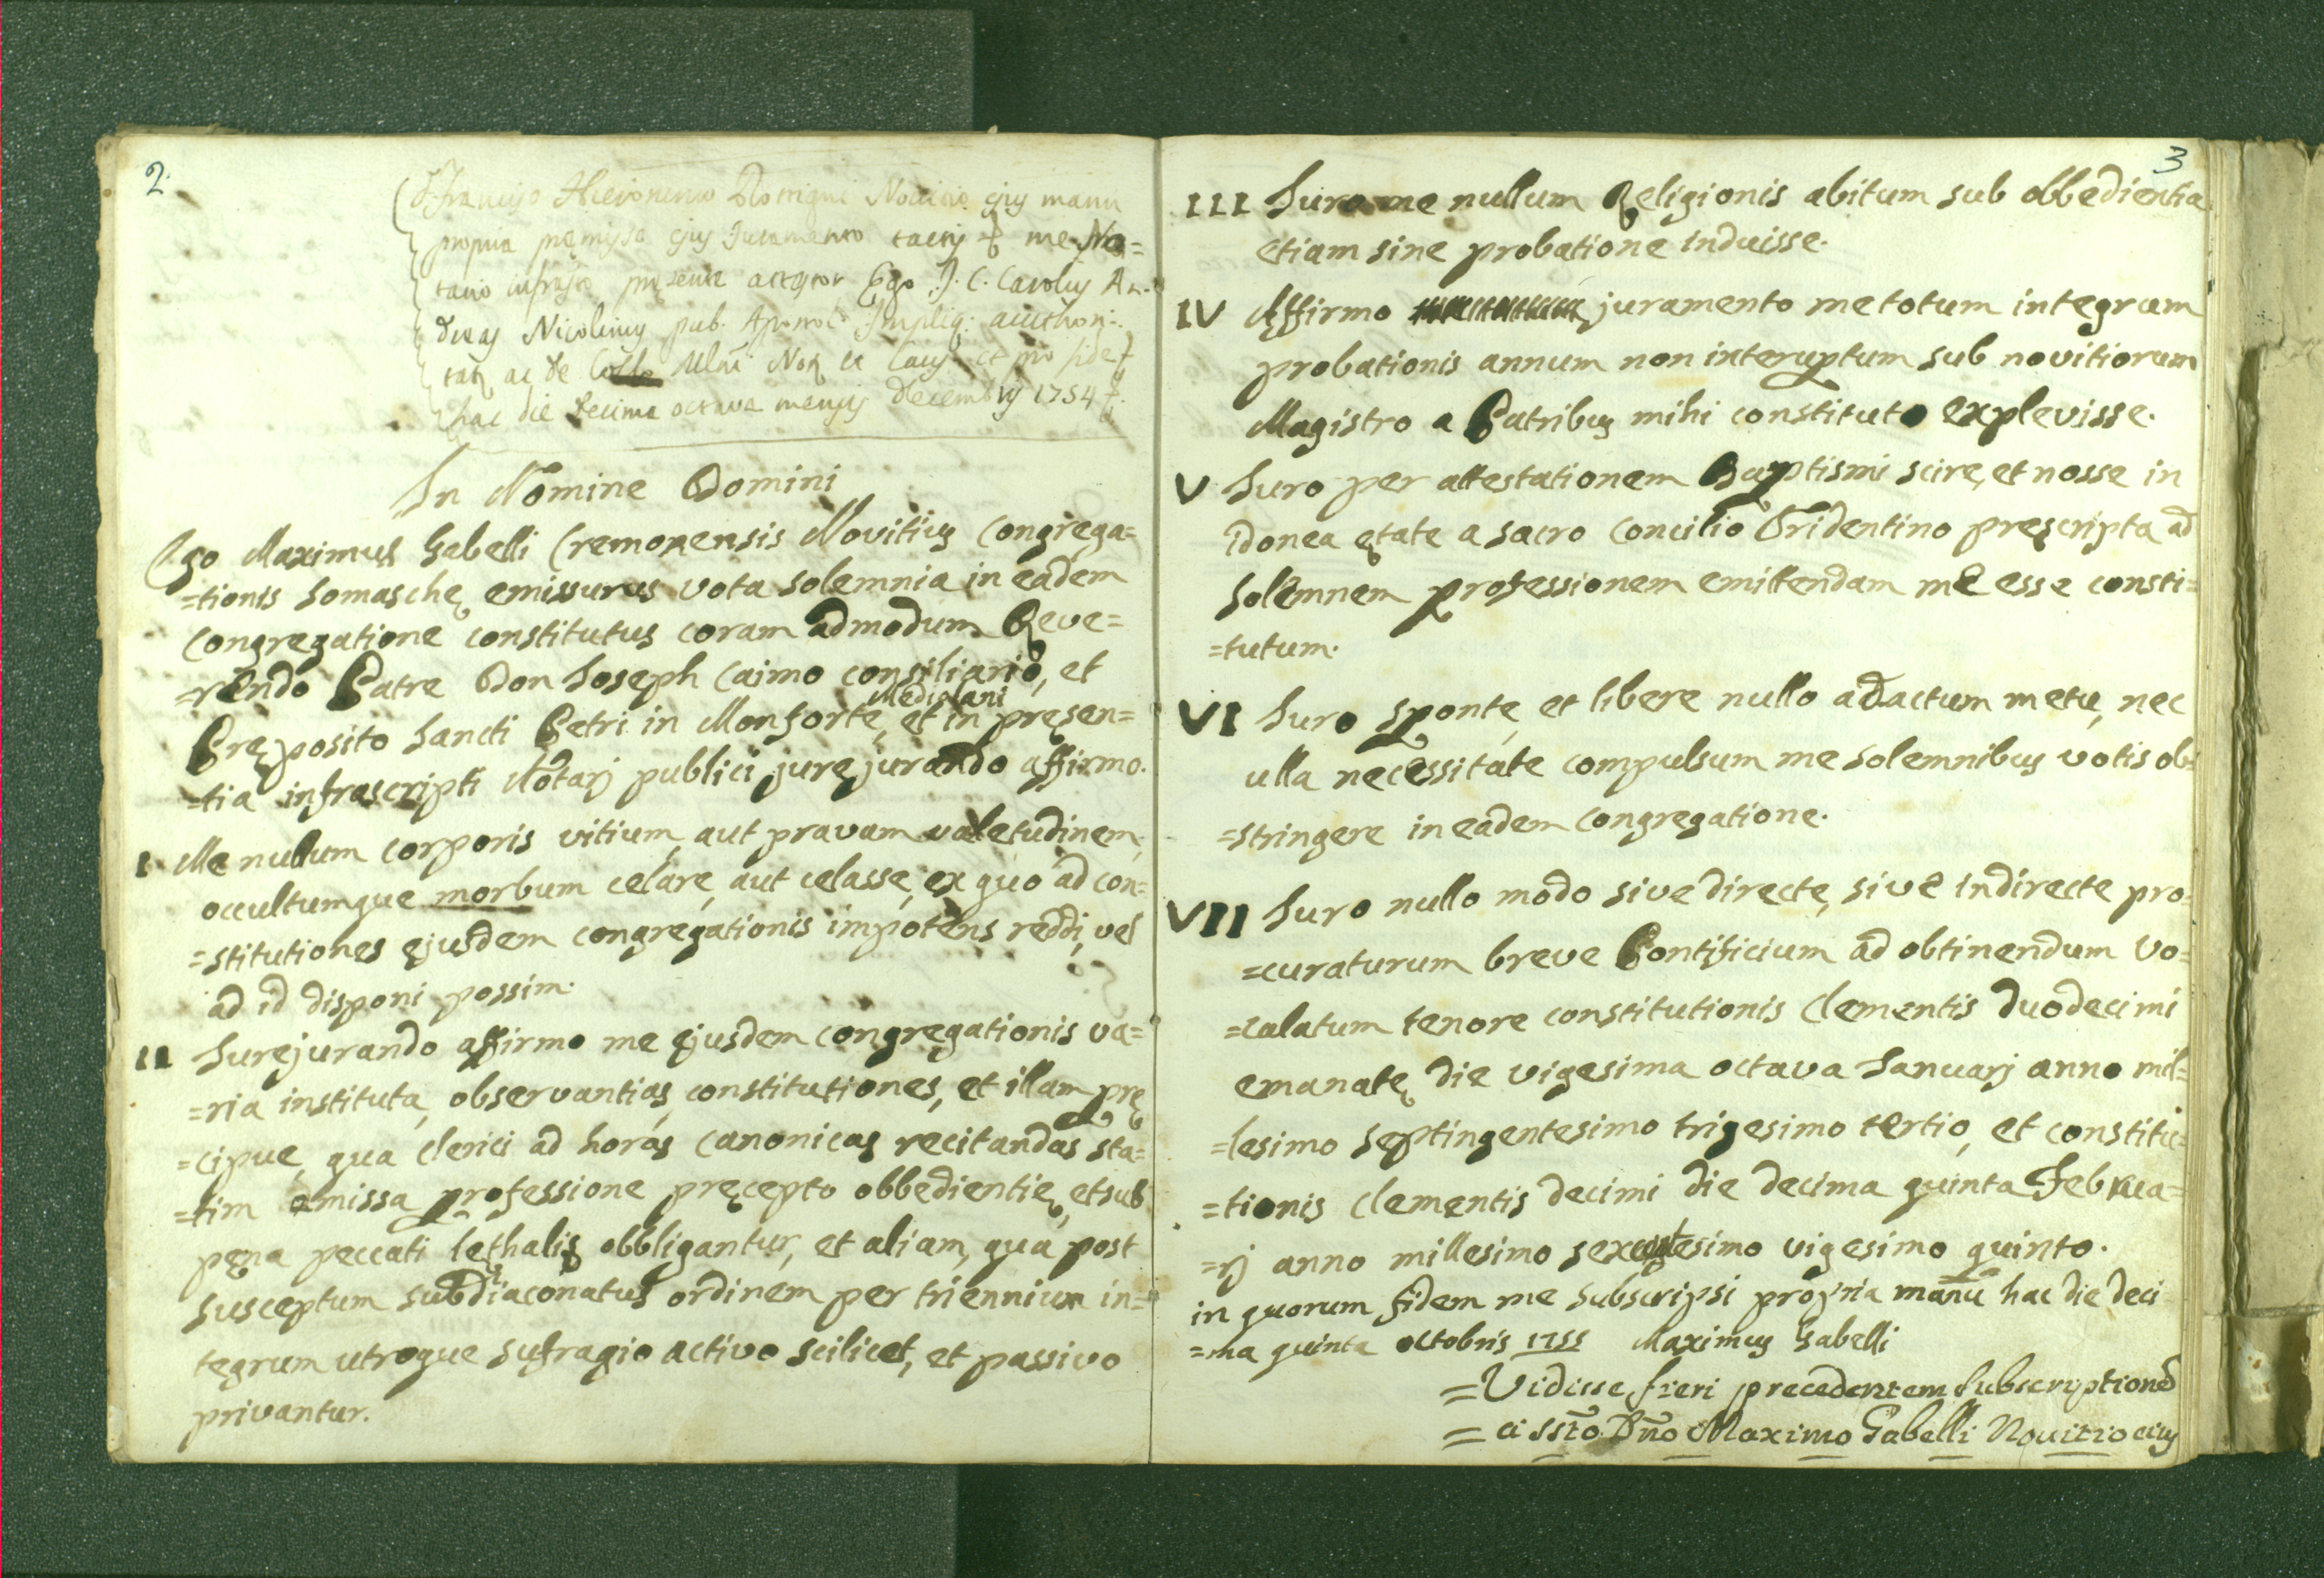 2.
Francisco Hieronimo Novicio ejus manu
propria premissa ejus Juramento tactis me No=
tario infrasto presente attestor Ego J. C. Carolus An=
dreas Nicolinus pub. Apostol.
ac de Not et Caus et pro fide
hac die decima octava mensis Decembris 1754
In Nomine Domini
Ego Maximus Gabelli Cremonensis Novitius Congrega=
=tionis Somaschę emissurus vota solemnia in eadem
Congregatione constitutus coram admodum Reve=
=rendo Patre Don Joseph Caimo consiliario, et
Pręposito Sancti Petri in Monforte Mediolani, et in pręsen=
=tia infrascripti Notarj publici jurejurando affirmo.
I Me nullum corporis vitium, aut pravam valetudinem,
occultumque morbum celare, aut celasse, ex quo ad con=
=stitutiones ejusdem congregationis impotens reddi, vel
ad id disponi possim.
II Jurejurando affirmo me ejusdem congregationis va=
=ria instituta, observantias, constitutiones, et illam prę
=cipue, qua clerici ad horas canonicas recitandas sta=
=tim emissa professione pręcepto obbedientię, et sub
pęna peccati lethalis obbligantur, et aliam, qua post
susceptum subdiaconatus ordinem per triennium in=
tegrum utroque sufragio activo scilicet, et passivo
privantur.
3
III Juro me nullum Religionis abitum sub obbedientia
etiam sine probatione induisse.
IV Affirmo juramento me totum integrum
probationis annum non interuptum sub novitiorum
Magistro a Patribus mihi constituto explevisse.
V Juro per attestationem Baptismi scire, et nosse in
idonea ętate a sacro Concilio Tridentino prescripta ad
solemnem professionem emittendam me esse consti=
=tutum.
VI Juro sponte, et libere nullo adactum metu, nec
ulla necessitate compulsum me solemnibus votis ob=
=stringere in eadem congregatione.
VII Juro nullo modo sive directe, sive indirecte pro=
=curaturum breve Pontificium ad obtinendum Vo=
=calatum tenore constitutionis Clementis duodecimi
emanatę die vigesima octava Januarj anno mil=
=lesimo septingentesimo trigesimo tertio, et constitu=
=tionis Clementis decimi die decima quinta Februa=
=rj anno millesimo sexcentesimo vigesimo quinto.
in quorum fidem me subscripsi propria manu hac die deci
=ma quinta octobris 1755 Maximus Gabelli
=Vidisse fieri precedentem subscriptione
= a ssto Dño Maximo Gabelli Novitio eius